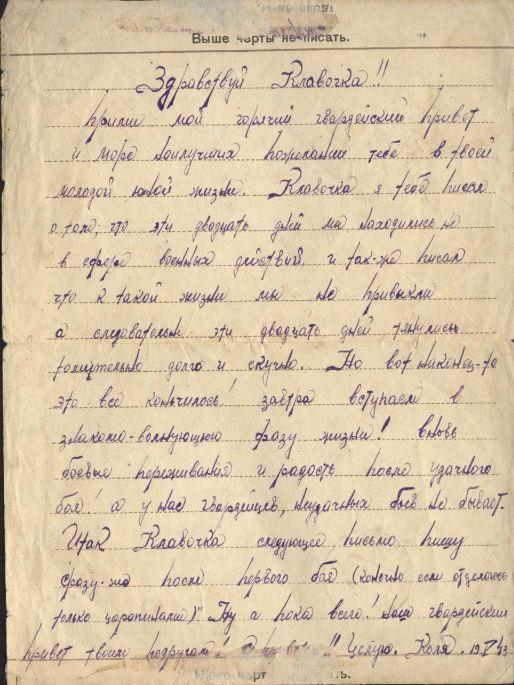 Выше черты не писать.
Здравствуй Клавочка!!
Прими мой горячий гвардейский привет
и море наилучших пожелании тебе в твоей
молодой юной жизни. Клавочка я тебе писал
о том, что эти двадцать дней мы находились не
в сфере военных действий, и так-же писал
что к такой жизни мы не привыкли
а следовательн эти двадцать дней тянулись
томительно долго и скучно. Но вот наконец-то
это все кончилось! завтра вступаем в
знакомо-волнующюю фазу жизни! вновь
боевые переживания и радость после удачного
боя! а у нас гвардейцев, неудачных боев не бывает.
Итак Клавочка следующее письмо пишу
сразу-же после первого боя (конечно если отделаюсь
только царапинами)" Ну а пока всего! наш гвардейский
привет твоим подругам. !! Целую. Коля. 19.V 43